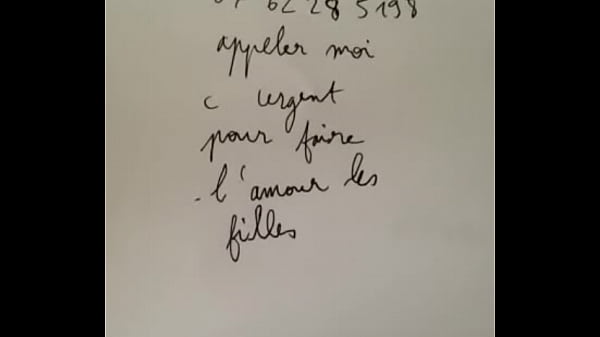 62 28 5198
appeler moi
c urgent
pour faire
l'amour les
filles